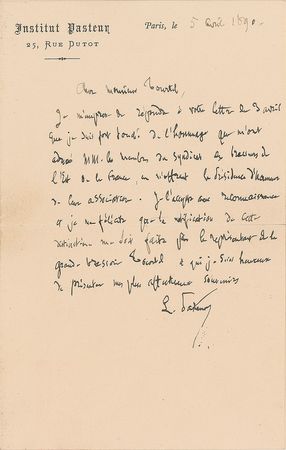 Institut Pasteur
25, Rue Dutot
Paris, le 5 août 1890.
Cher monsieur Tourtel,
Je m'empresse de répondre à votre lettre de 3 avril
que je suis fort touché de l'hommage que m'ont
adressé MM. les membres du Syndicat des brasseurs de
l'Est de la France, en m'offrant la présidence d'honneur
de leur association. J'accepte avec reconnaissance
et je me félicite que la notification de cette
distinction me soit faite par le représentant de la
grande brasserie Tourtel à qui je suis heureux
de présenter mes plus affectueux souvenirs
L. Pasteur